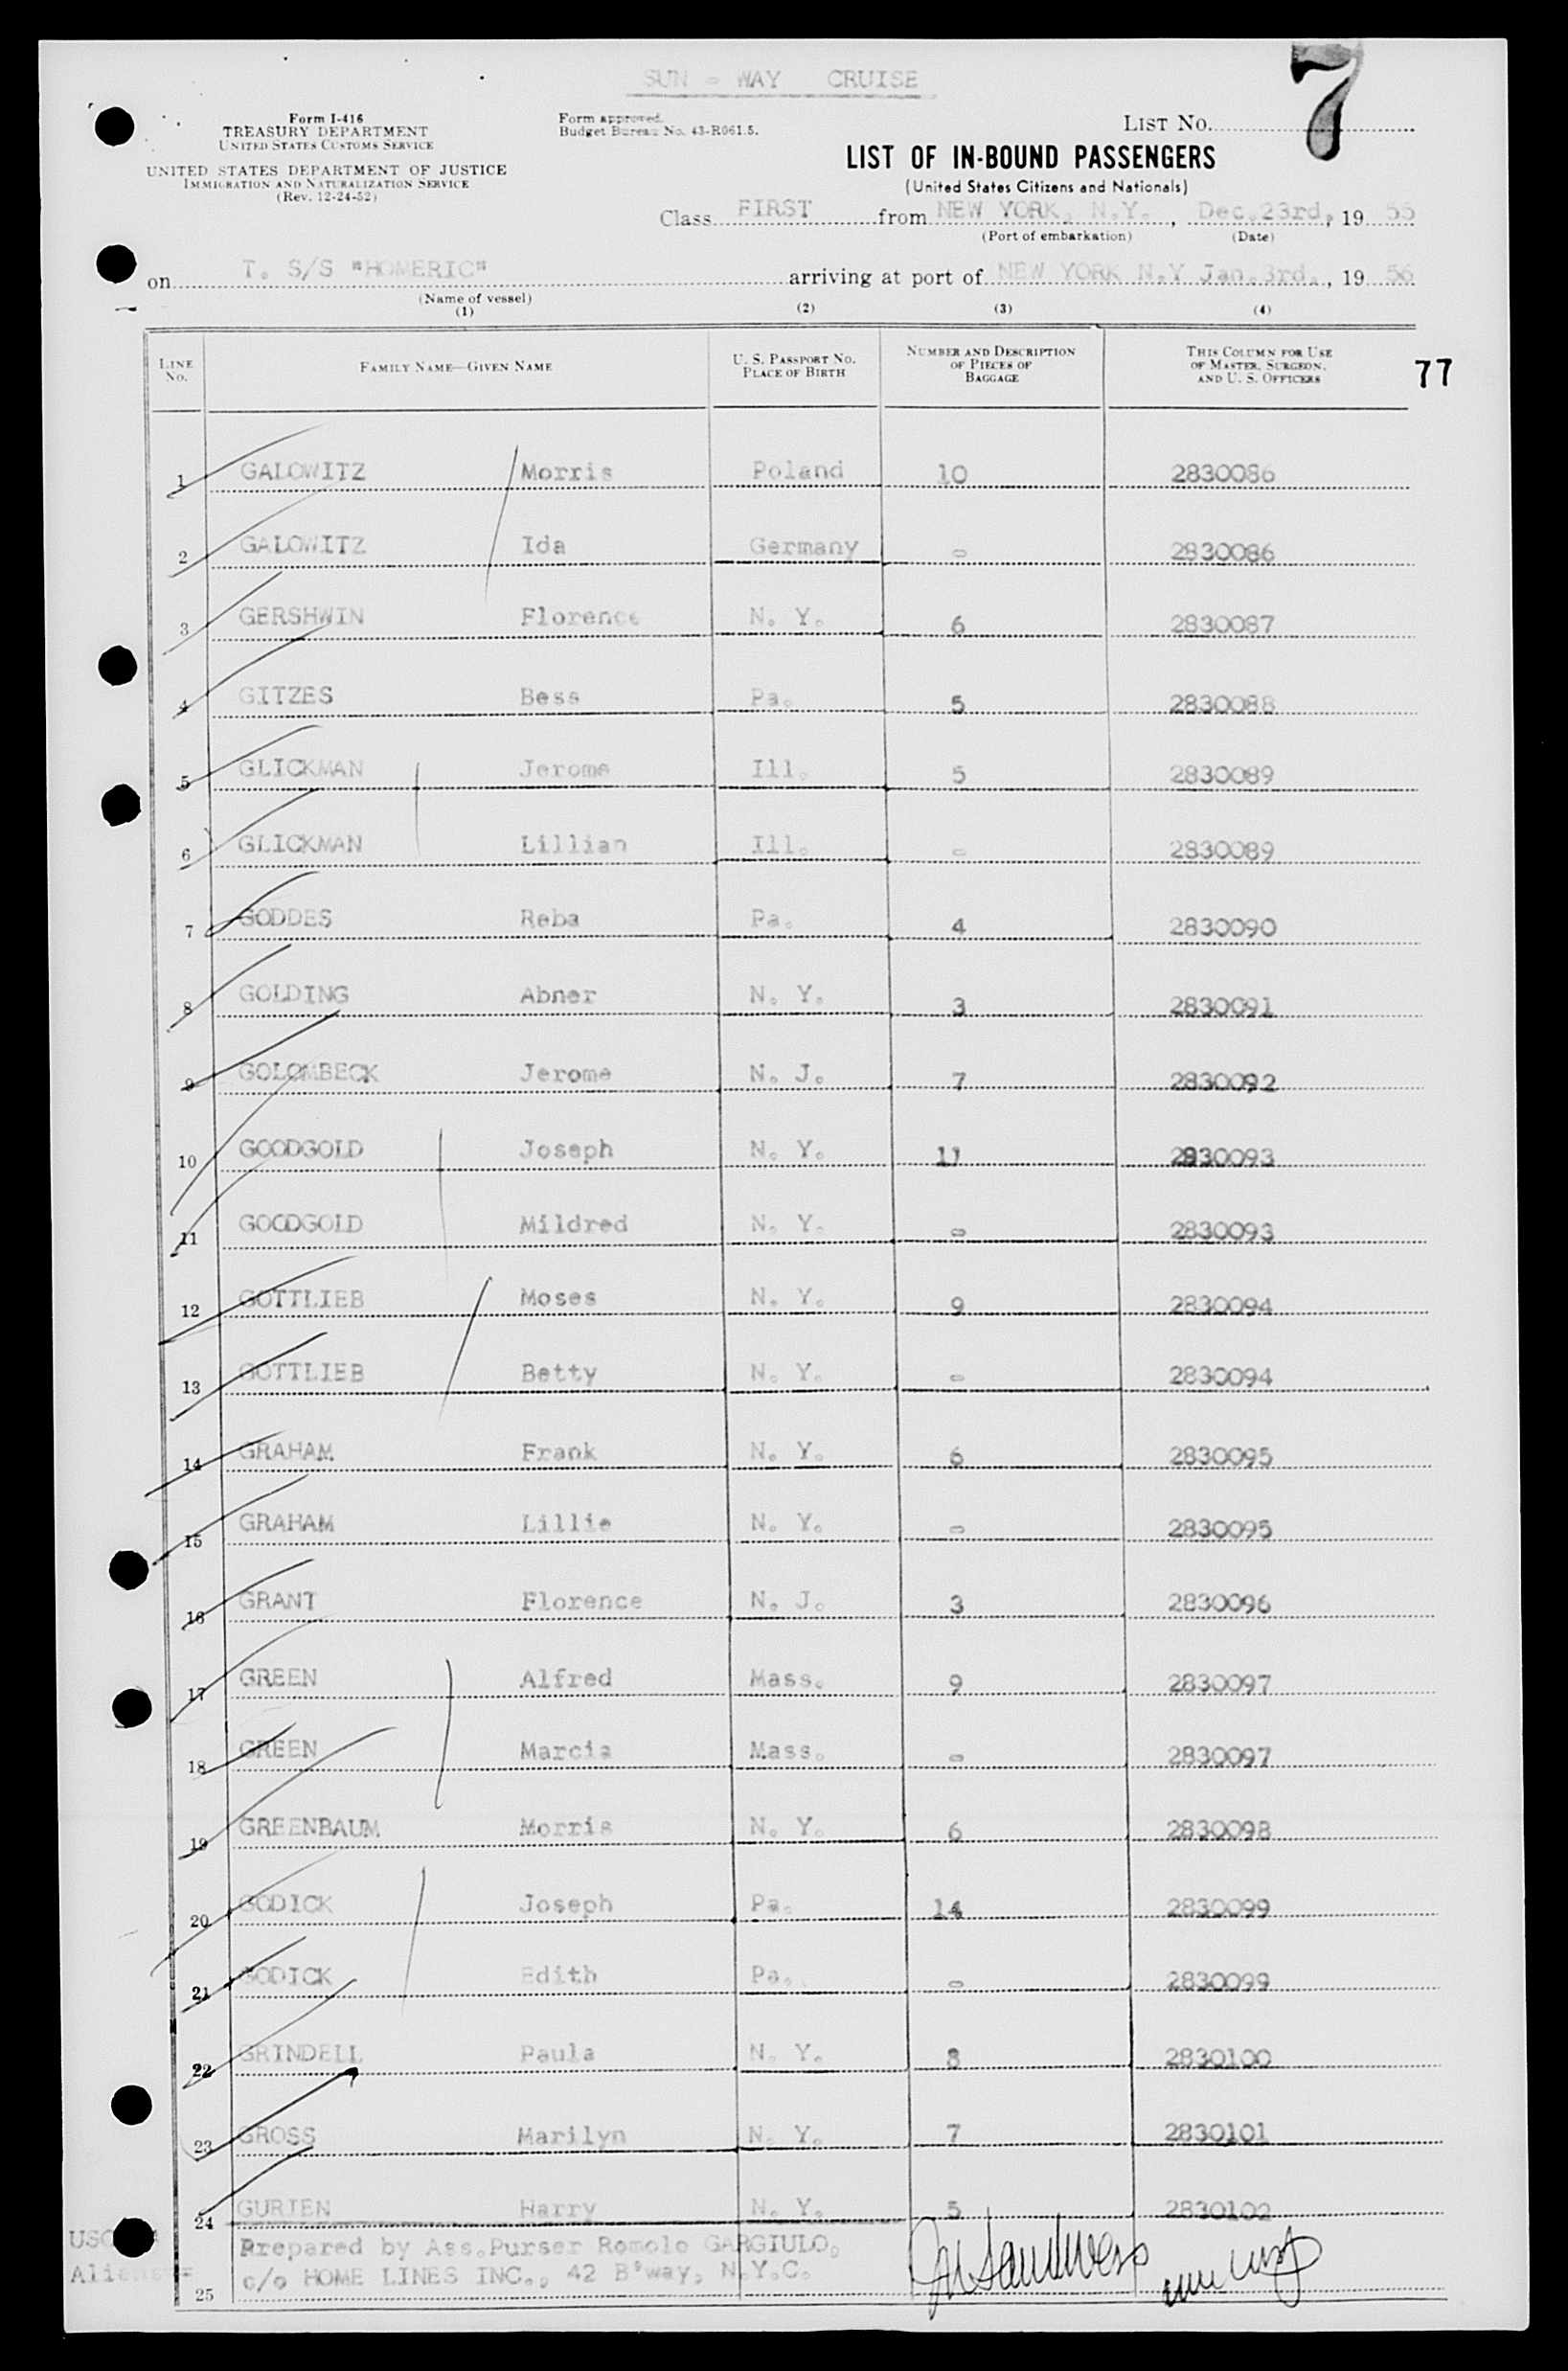 SUN - WAY CRUISE
7
Form I-416
TREASURY DEPARTMENT
UNITED STATES CUSTOMS SERVICE
UNITED STATES DEPARTMENT OF JUSTICE
IMMIGRATION AND NATURALIZATION SERVICE
(Rev. 12-24-52)
Form approved.
Budget Bureau No. 43-R061.5.
LIST NO.
LIST OF IN-BOUND PASSENGERS
(United States Citizens and Nationals)
Class FIRST from NEW YORK, N.Y., Dec.23rd, 19 55
(Port of embarkation) (Date)
on T. S/S "HOMERIC" arriving at port of NEW YORK N.Y Jan.3rd., 19 56
(Name of vessel)
(1) (2) (3) (4)
LINE No. FAMILY NAME—GIVEN NAME U. S. PASSPORT NO. PLACE OF BIRTH NUMBER AND DESCRIPTION OF PIECES OF BAGGAGE THIS COLUMN FOR USE OF MASTER, SURGEON, AND U. S. OFFICERS
77
1 GALOWITZ Morris Poland 10 2830086
2 GALOWITZ Ida Germany - 2830086
3 GERSHWIN Florence N. Y. 6 2830087
4 GITZES Bess Pa. 5 2830088
5 GLICKMAN Jerome Ill. 5 2830089
6 GLICKMAN Lillian Ill. - 2830089
7 GODDES Reba Pa. 4 2830090
8 GOLDING Abner N. Y. 3 2830091
9 GOLOMBECK Jerome N. J. 7 2830092
10 GOODGOLD Joseph N. Y. 11 2830093
11 GOODGOLD Mildred N. Y. - 2830093
12 GOTTLIEB Moses N. Y. 9 2830094
13 GOTTLIEB Betty N. Y. - 2830094
14 GRAHAM Frank N. Y. 6 2830095
15 GRAHAM Lillie N. Y. - 2830095
16 GRANT Florence N. J. 3 2830096
17 GREEN Alfred Mass. 9 2830097
18 GREEN Marcia Mass. - 2830097
19 GREENBAUM Morris N. Y. 6 2830098
20 GODICK Joseph Pa. 14 2830099
21 GODICK Edith Pa. - 2830099
22 GRINDELL Paula N. Y. 8 2830100
23 GROSS Marilyn N. Y. 7 2830101
24 GURIEN Harry N. Y. 5 2830102
Prepared by Ass.Purser Romolo GARGIULO,
25 c/o HOME LINES INC., 42 B'way, N.Y.C.